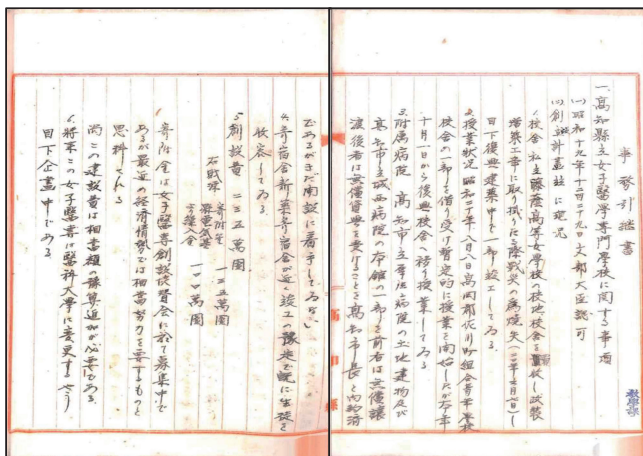 事務引継書
一、高知縣立女子醫學專門學校に関する事項
(一)昭和十九年十二月二十九日文部大臣認可
(二)創設計畫並に現況
1.校舎 私立藤蔭高等女學校の校地校舎を買收し改装
増築工事に取り掛りたる際戰災の為焼失
目下復興建築中で一部竣工してゐる
2.授業状況 昭和二十年八月八日高岡郡佐川町組合青年學校
校舎の一部を借り受け暫定的に授業を開始したが本年
十月一日から復興校舎へ移り授業してゐる
3.附属病院 高知市立幸崔病院の土地建物及び
高知市立城西病院の本館の一部を前者は無償譲
渡後者は無償貸與を受けることを高知市長と内約済
であるがまだ開設に着手してゐない
4.寄宿舎 新築寄宿舎が近く竣工の豫定で既に生徒を
收容してゐる
5.創設費 二三五萬圓
右財源 寄附金 一三五萬圓
一〇〇萬圓
寄附金は女子醫專創設後援会に於て募集中で
あるが最近の経済情勢では相當努力を要するものと
思料される
尚この建設費は相當額の豫算追加が必要である
6.將来この女子醫專は醫科大學に變更するやう
目下企畫中である
高知縣
教學課